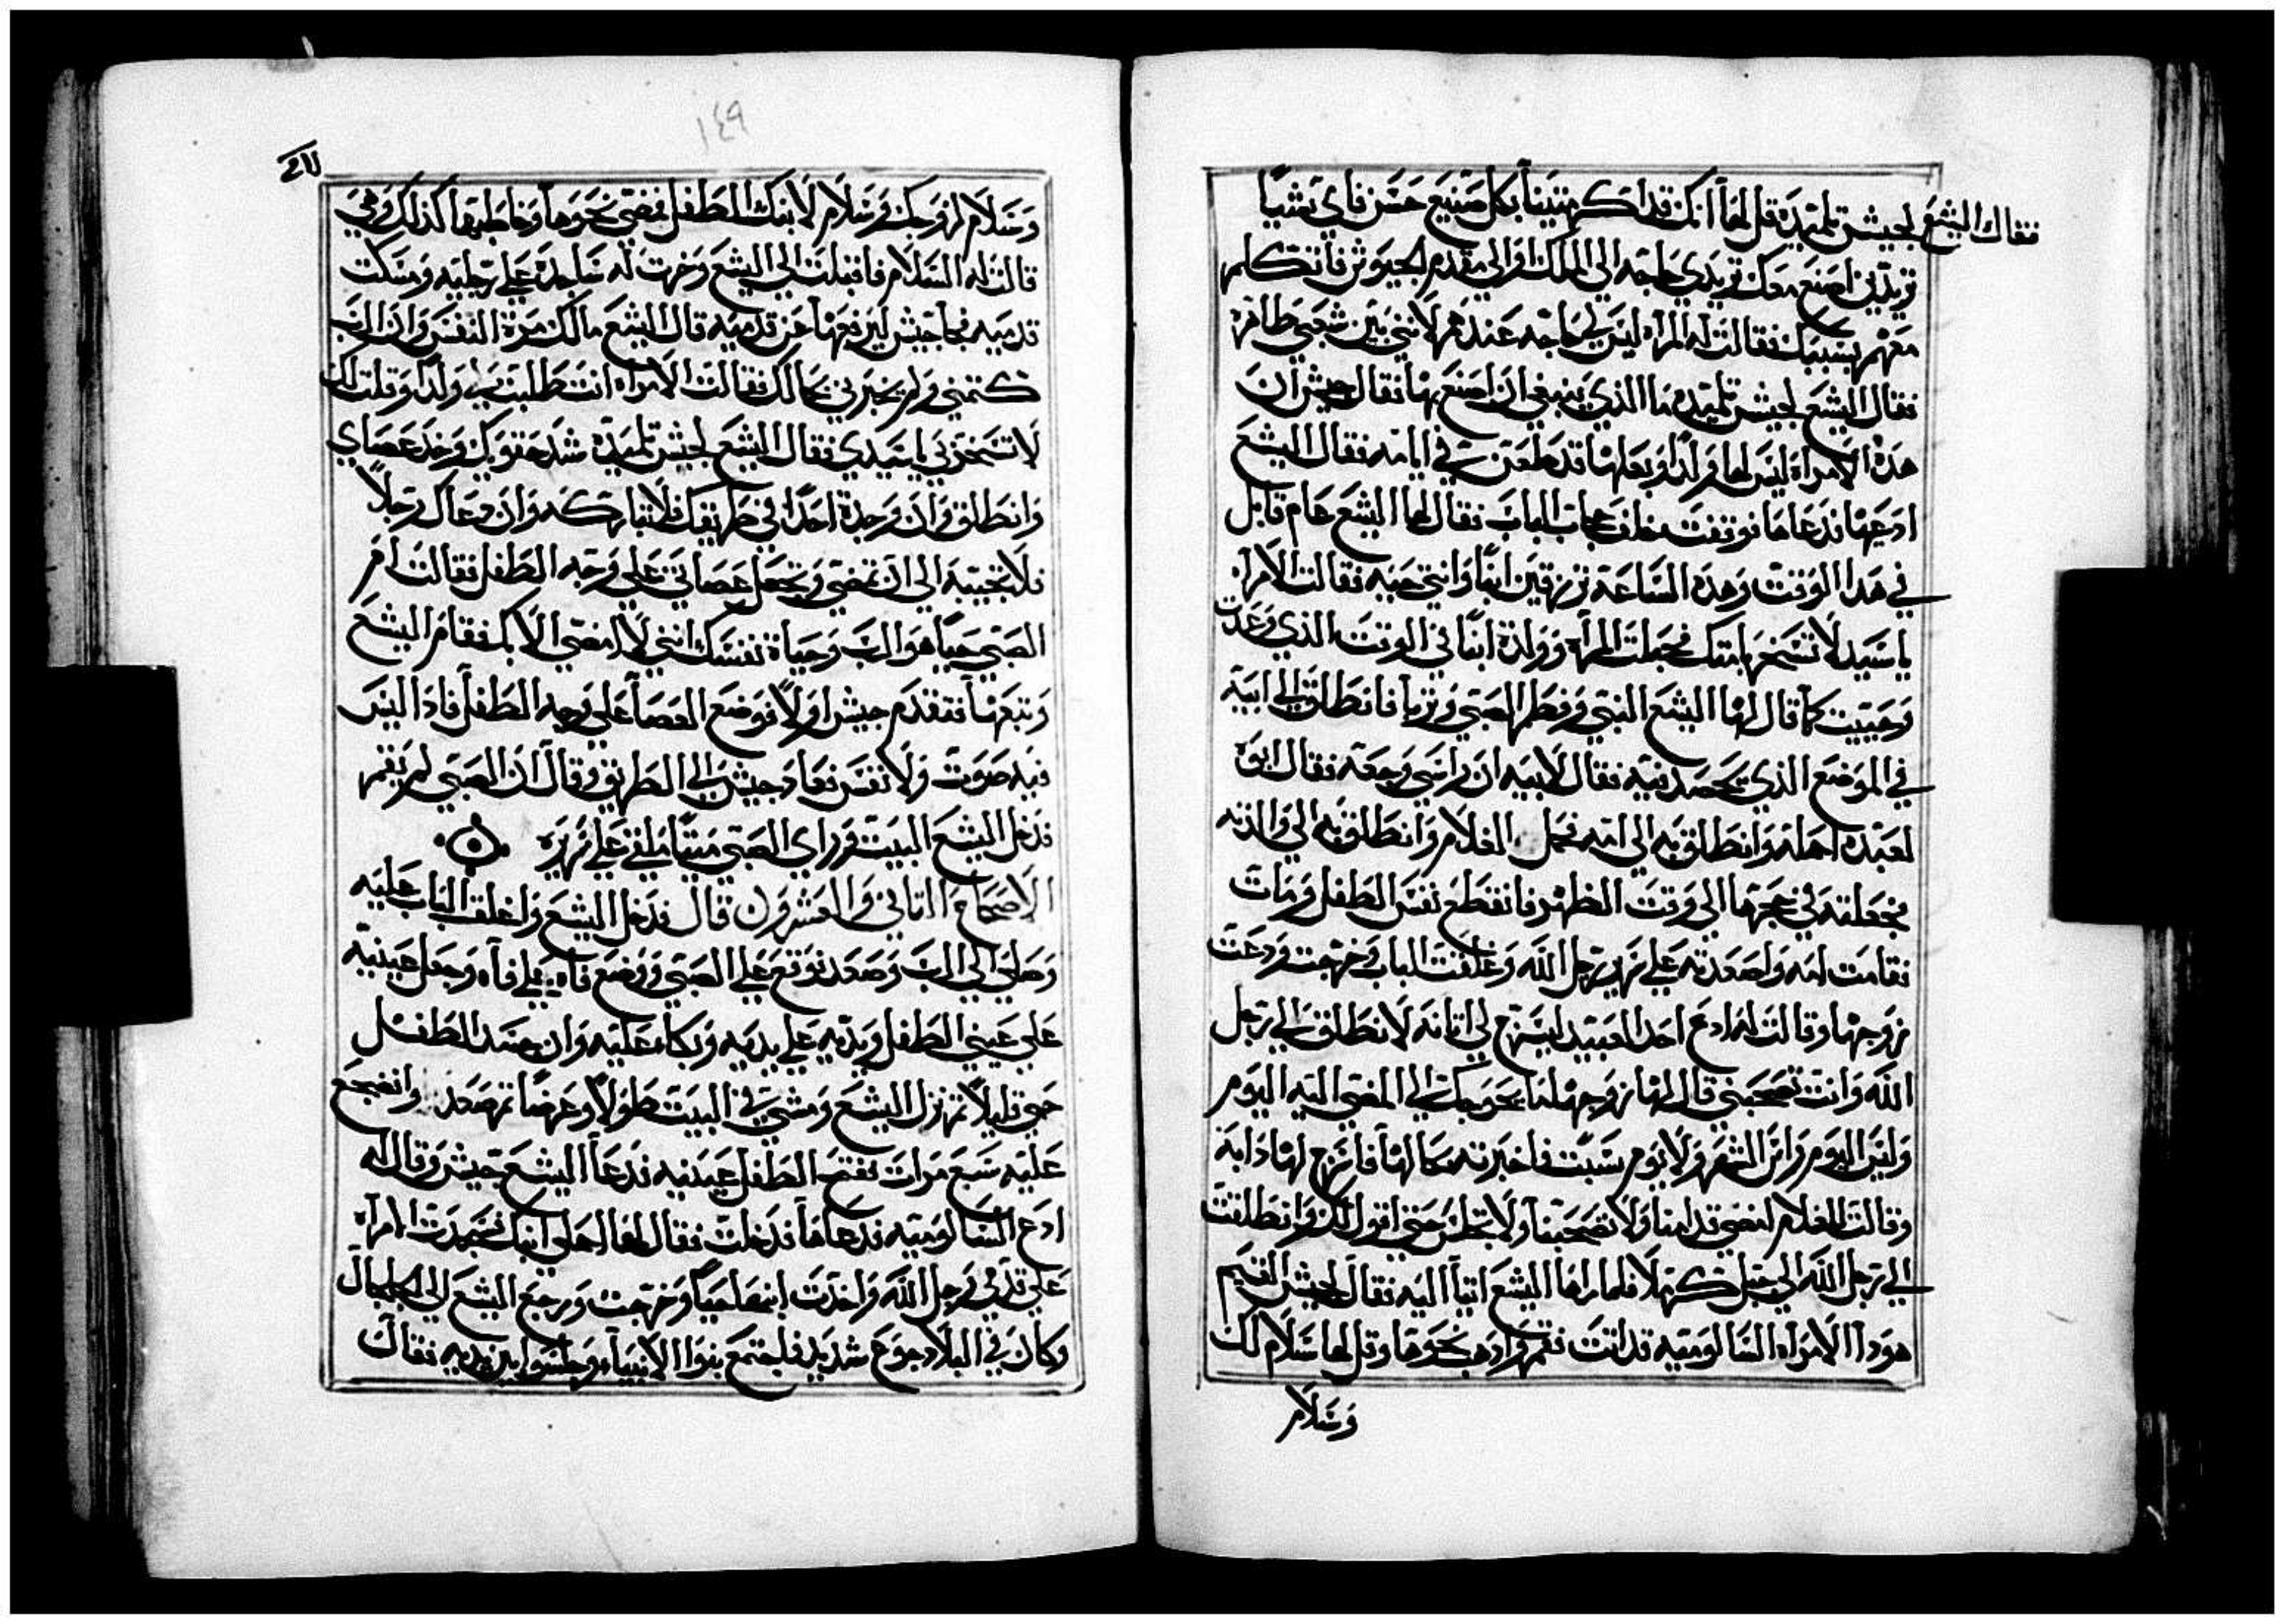 فقال اليشع لجيش تلميده قل لها انك قد اكرمتينا بكل صنيع حسن فاي شيا
تريدين اصنع معك تريدي حاجه الى الملك او الى مقدم الجيوش فاتكلم
معهم بسببك فقالت له المراه ليس لي حاجه عندهم لانني بين شعبي ظافره
فقال اليشع لجيش تلميده ما الذي ينبغي ان اصنع بها فقال جيش ان
هده الامراه ليس لها ولدا وبعلها قد طعن في ايامه فقال اليشع
ادعيها فدعاها فوقفت خلف حجاب الباب فقال لها اليشع عام قابل
في هدا الوقت وهده الساعة ترزقين ابنا وانتي حيه فقالت الامراه
يا سيد لا تسخر بامتك فحبلت المراه وولدة ابنا في الوقت الذي وعدت
وحييت كما قال لها اليشع النبي وفطم الصبي وتربا فانطلق الى ابيه
في الموضع الذي يحصد فيه فقال لابيه ان راسي وجعه فقال ابوه
لعبده احمله وانطلق به الى امه فحمل الغلام وانطلق به الى والدته
فجعلته في حجرها الى وقت الظهر فانقطع نفس الطفل ومات
فقامت امه واصعدته على سرير رجل الله وغلقت الباب وخرجت ودعت
زوجها وقالت له ادع احد العبيد ليسرج لي اتانه لانطلق الى رجل
الله وانت تصحبني قال لها زوجها لما يحوبك الى المضي اليه اليوم
وليس اليوم راس الشهر ولا يوم سبت فاخبرته بحالها فاسرج لها دابه
وقالت للغلام امضي قدامنا ولا تصحبنا ولا تجلس حتى اقول لك وانطلقت
الى رجل الله الى جبل كرملا فلما راها اليشع اتيا اليه فقال لجيش القيم
هودا الامراه السالوميه قد اتت فقم وادهب نحوها وقل لها سلام لك
وسلام
١٤٩
وسلام لزوجك وسلام لابنك الطفل فمضى نحوها وخاطبها كذلك وهي
قالت له السلام فاقبلت الى اليشع وخرت له ساجده على رجليه ومسكت
قدميه فجا جيش ليرفعها عن قدميه قال اليشع مالك مرة النفس وان الرب
كتمني ولم يخبرني بحالك فقالت الامراه انت طلبت لي ولدا وقلت لك
لا تسخر بي يا سيدي فقال اليشع لجيش تلميده شد حقويك وخد عصاي
وانطلق وان وجدة احدا في طريقك فلا تباركه وان دعاك رجلا
فلا تجيبه الى ان تمضي وتجعل عصاتي على وجه الطفل فقالت ام
الصبي حيا هو الرب وحياة نفسك انني لا امضي الا بك فقام اليشع
وتبعها فتقدم جيش اولا فوضع العصا على وجه الطفل فادا ليس
فيه صوت ولا نفس فعاد جيش الى الطريق وقال ان الصبي لم يقم
فدخل اليشع البيت وراي الصبي ميتا ملقى على سريره
الاصحاح الثاني والعشرون قال فدخل اليشع واغلق الباب عليه
وصلى الى الرب وصعد فوقع على الصبي ووضع فاه على فاه وجعل عينيه
على عيني الطفل ويديه على يديه وبكاء عليه وان جسد الطفل
حمي قليلا ثم نزل اليشع ومشي في البيت طولا وعرضا ثم صعد وانضجع
عليه سبع مرات ففتح الطفل عينيه فدعا اليشع جيش وقال له
ادع السالوميه فدعاها فدخلت فقال لها احملى ابنك فسجدت المراه
على قدمي رجل الله واخدت ابنها حيا وخرجت ورجع اليشع الى الجلجال
وكان في البلاد جوع شديد فاجتمع بنوا الانبياء وجلسوا بين يديه فقال